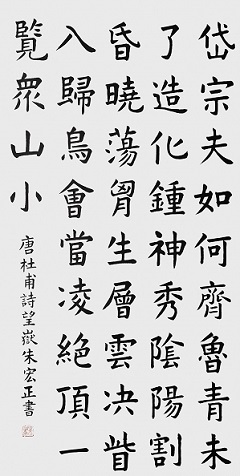 岱宗夫如何齊魯青未
了造化鍾神秀陰陽割
昏曉蕩胷生層雲決眥
入歸鳥會當凌絕頂一
覽眾山小
唐杜甫詩望嶽朱宏正書